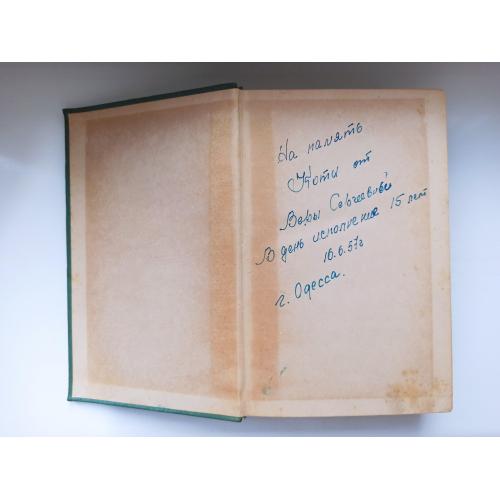 На память
Коти от
Веры Сергеевны
В день исполнения 15 лет
16.6.57г
г. Одесса.